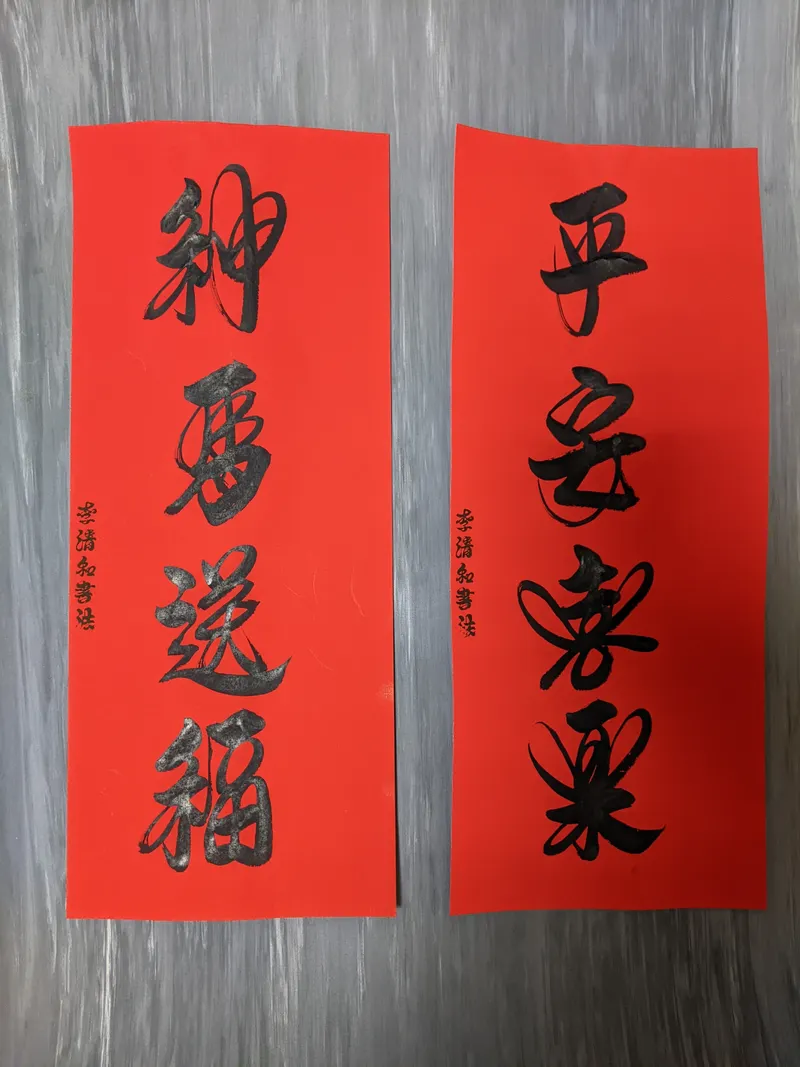 平安喜樂
李清和書法
神馬送福
李清和書法